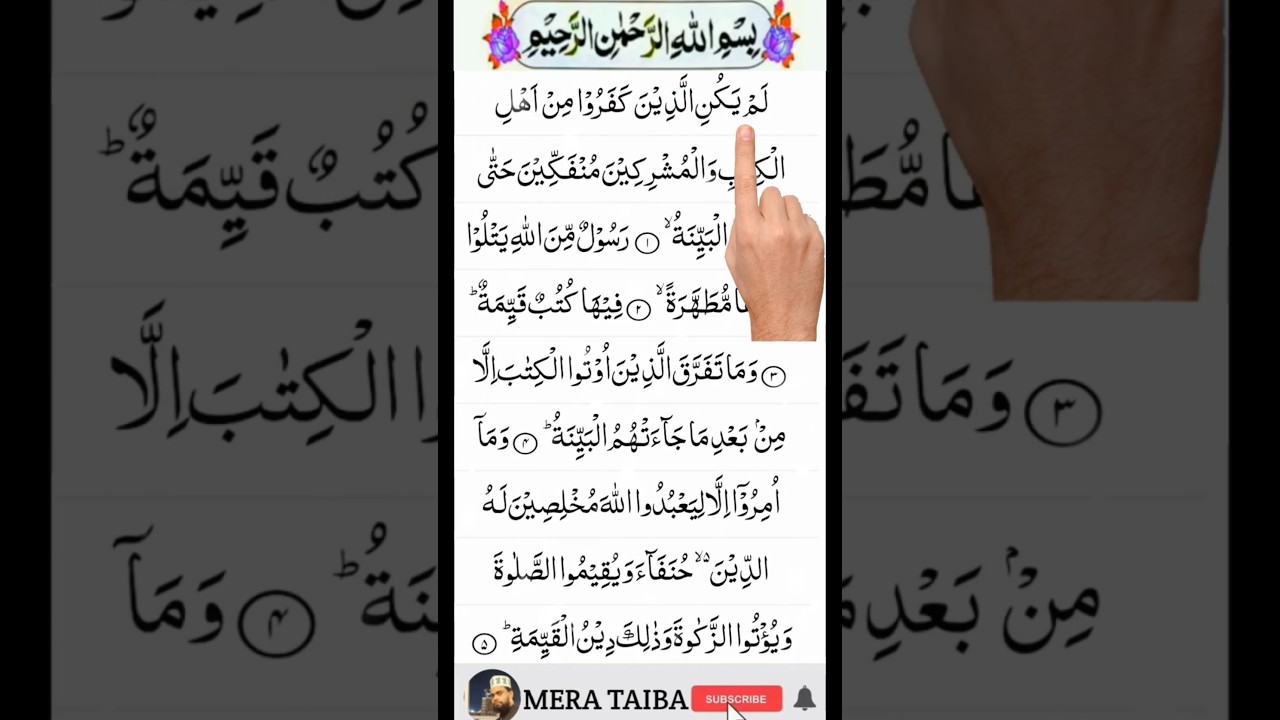 بِسْمِ اللهِ الرَّحْمٰنِ الرَّحِيْمِ
لَمْ يَكُنِ الَّذِيْنَ كَفَرُوْا مِنْ اَهْلِ
وَالْمُشْرِكِيْنَ مُنْفَكِّيْنَ حَتّٰى
الْبَيِّنَةُ ۙ ۱ رَسُوْلٌ مِّنَ اللهِ يَتْلُوْا
مُّطَهَّرَةً ۙ ۲ فِيْهَا كُتُبٌ قَيِّمَةٌ ؕ
۳ وَمَا تَفَرَّقَ الَّذِيْنَ اُوْتُوا الْكِتٰبَ اِلَّا
مِنْۢ بَعْدِ مَا جَآءَتْهُمُ الْبَيِّنَةُ ؕ ۴ وَمَآ
اُمِرُوْٓا اِلَّا لِيَعْبُدُوا اللهَ مُخْلِصِيْنَ لَهُ
الدِّيْنَ ۙ۬ حُنَفَآءَ وَيُقِيْمُوا الصَّلٰوةَ
وَيُؤْتُوا الزَّكٰوةَ وَذٰلِكَ دِيْنُ الْقَيِّمَةِ ؕ ۵
MERA TAIBA SUBSCRIBE